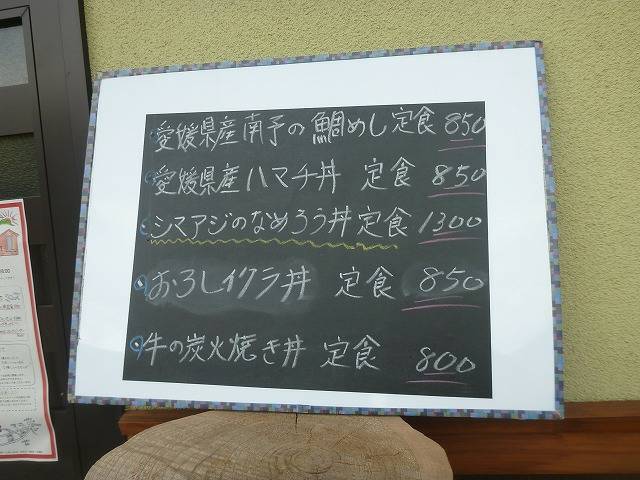 愛媛県産南予の鯛めし定食 850
愛媛県産ハマチ丼 定食 850
シマアジのなめろう丼定食 1300
おろしイクラ丼 定食 850
牛の炭火焼き丼 定食 800